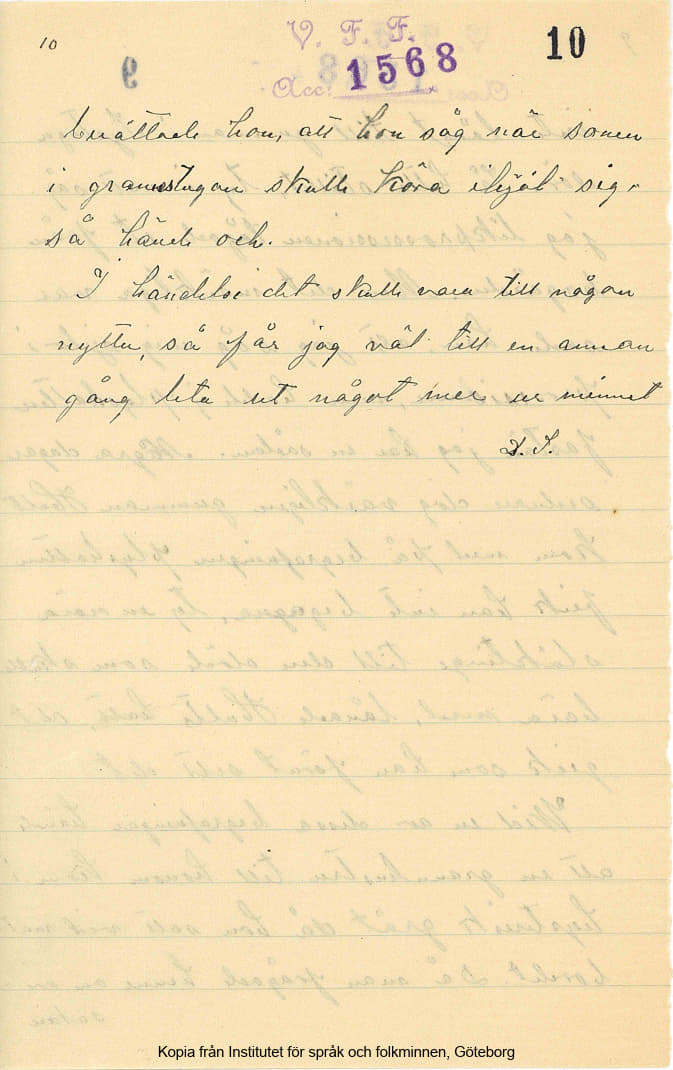 10
V. F. F.
10
Acc: 1568
berättade hon, att hon såg när sonen
i grannstugan skulle köra ihjäl sig,
så hände och.
I händelse det skulle vara till någon
nytta, så får jag väl till en annan
gång leta ut något mer ur minnet
Kopia från Institutet för språk och folkminnen, Göteborg